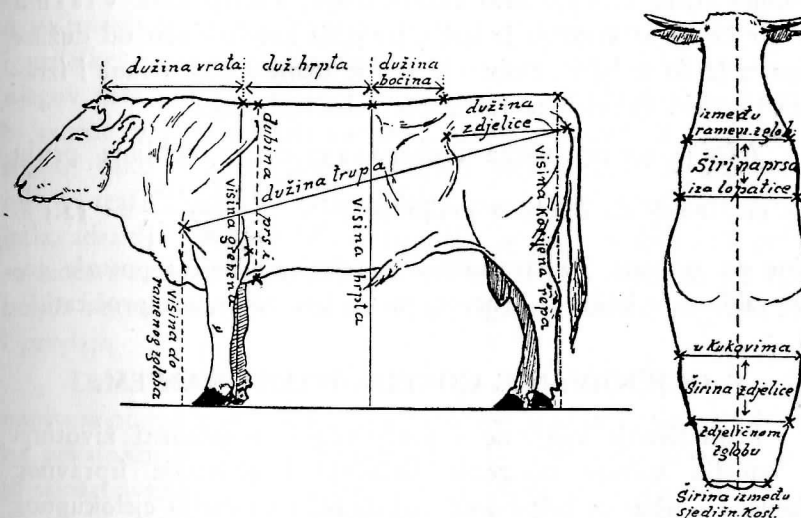 dužina vrata
duž. hrpta
dužina
bočina
dužina
zdjelice
dužina trupa
dubina prsi.
visina grebena
visina do
ramenog zgloba
visina hrpta
visina korijena repa
između
ramen. zglob.
Širina prsa
iza lopatice
u kukovima
Širina zdjelice
zdjeličnom
zglobu
Širina između
sjedišn. Kost.